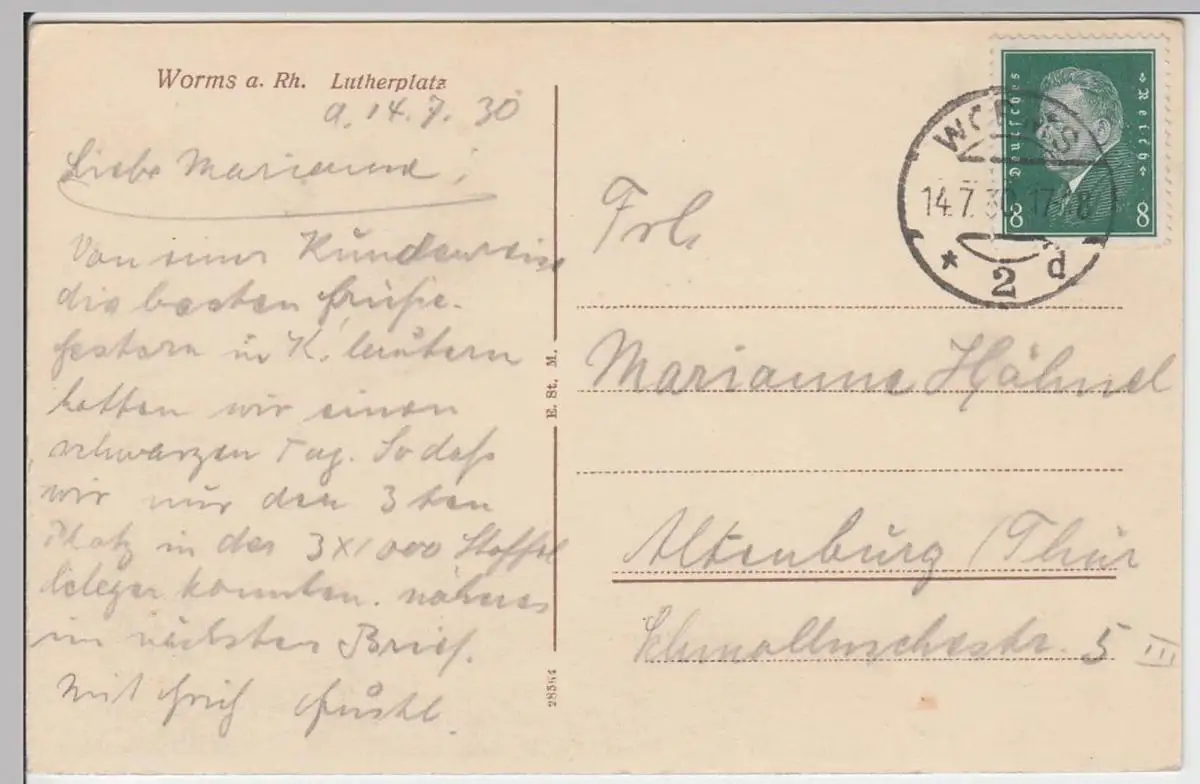 Worms a. Rh. Lutherplatz
a. 14. 7. 30
Liebe Marianne!
Von einer Kundereise
die besten Grüße.
gestern in K. lautern
hatten wir einen
schwarzen Tag. So daß
wir nur den 3 ten
Platz in der 3X1000 Staffel
belegen konnten. näheres
im nächsten Brief.
mit
E. St. M.
28564
Deutsches Reich
8 8
WORMS
14.7.30.17-18
* 2 d
Frl.
Marianne Hähnel
Altenburg /Thür
Schmollnschestr. 5 III